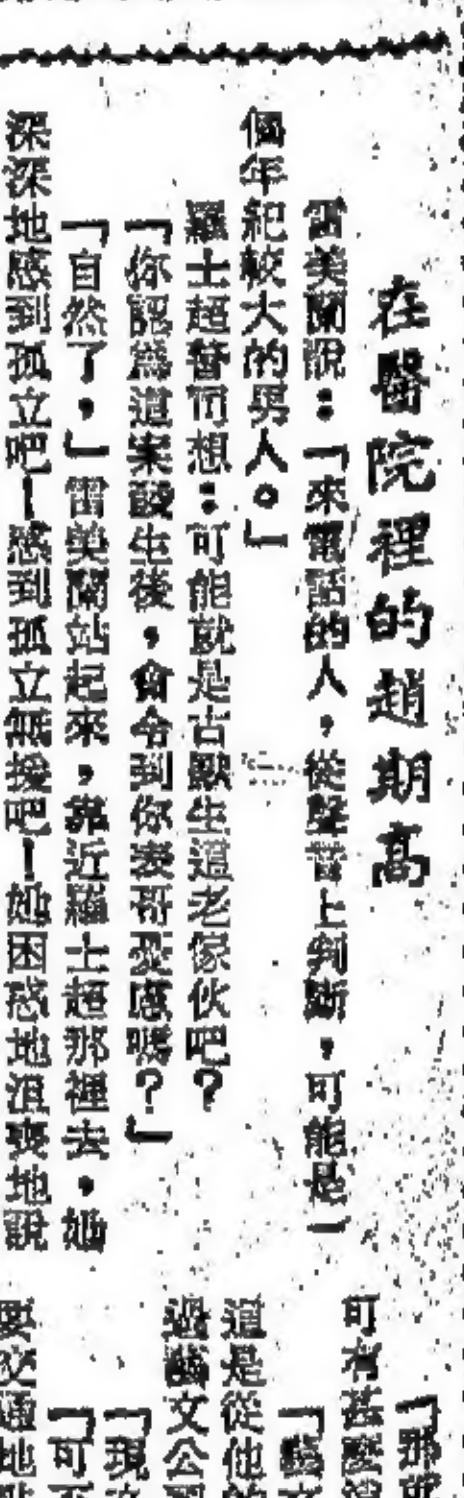 在醫院裡的趙期高
雷美蘭說：「來電話的人，從聲音上判斷，可能是一
個年紀較大的男人。」
羅士超暫而想：可能就是古獸生這老傢伙吧？
「你認為這案發生後，會令到你表哥憂慮嗎？」
「自然了。」雷美蘭站起來，靠近羅士超那裡去，她
深深地感到孤立吧！感到孤立無援吧！她困惑地沮喪地說
「那
可有甚麼
這是從他的
過 文公
「現
「可
要交通地